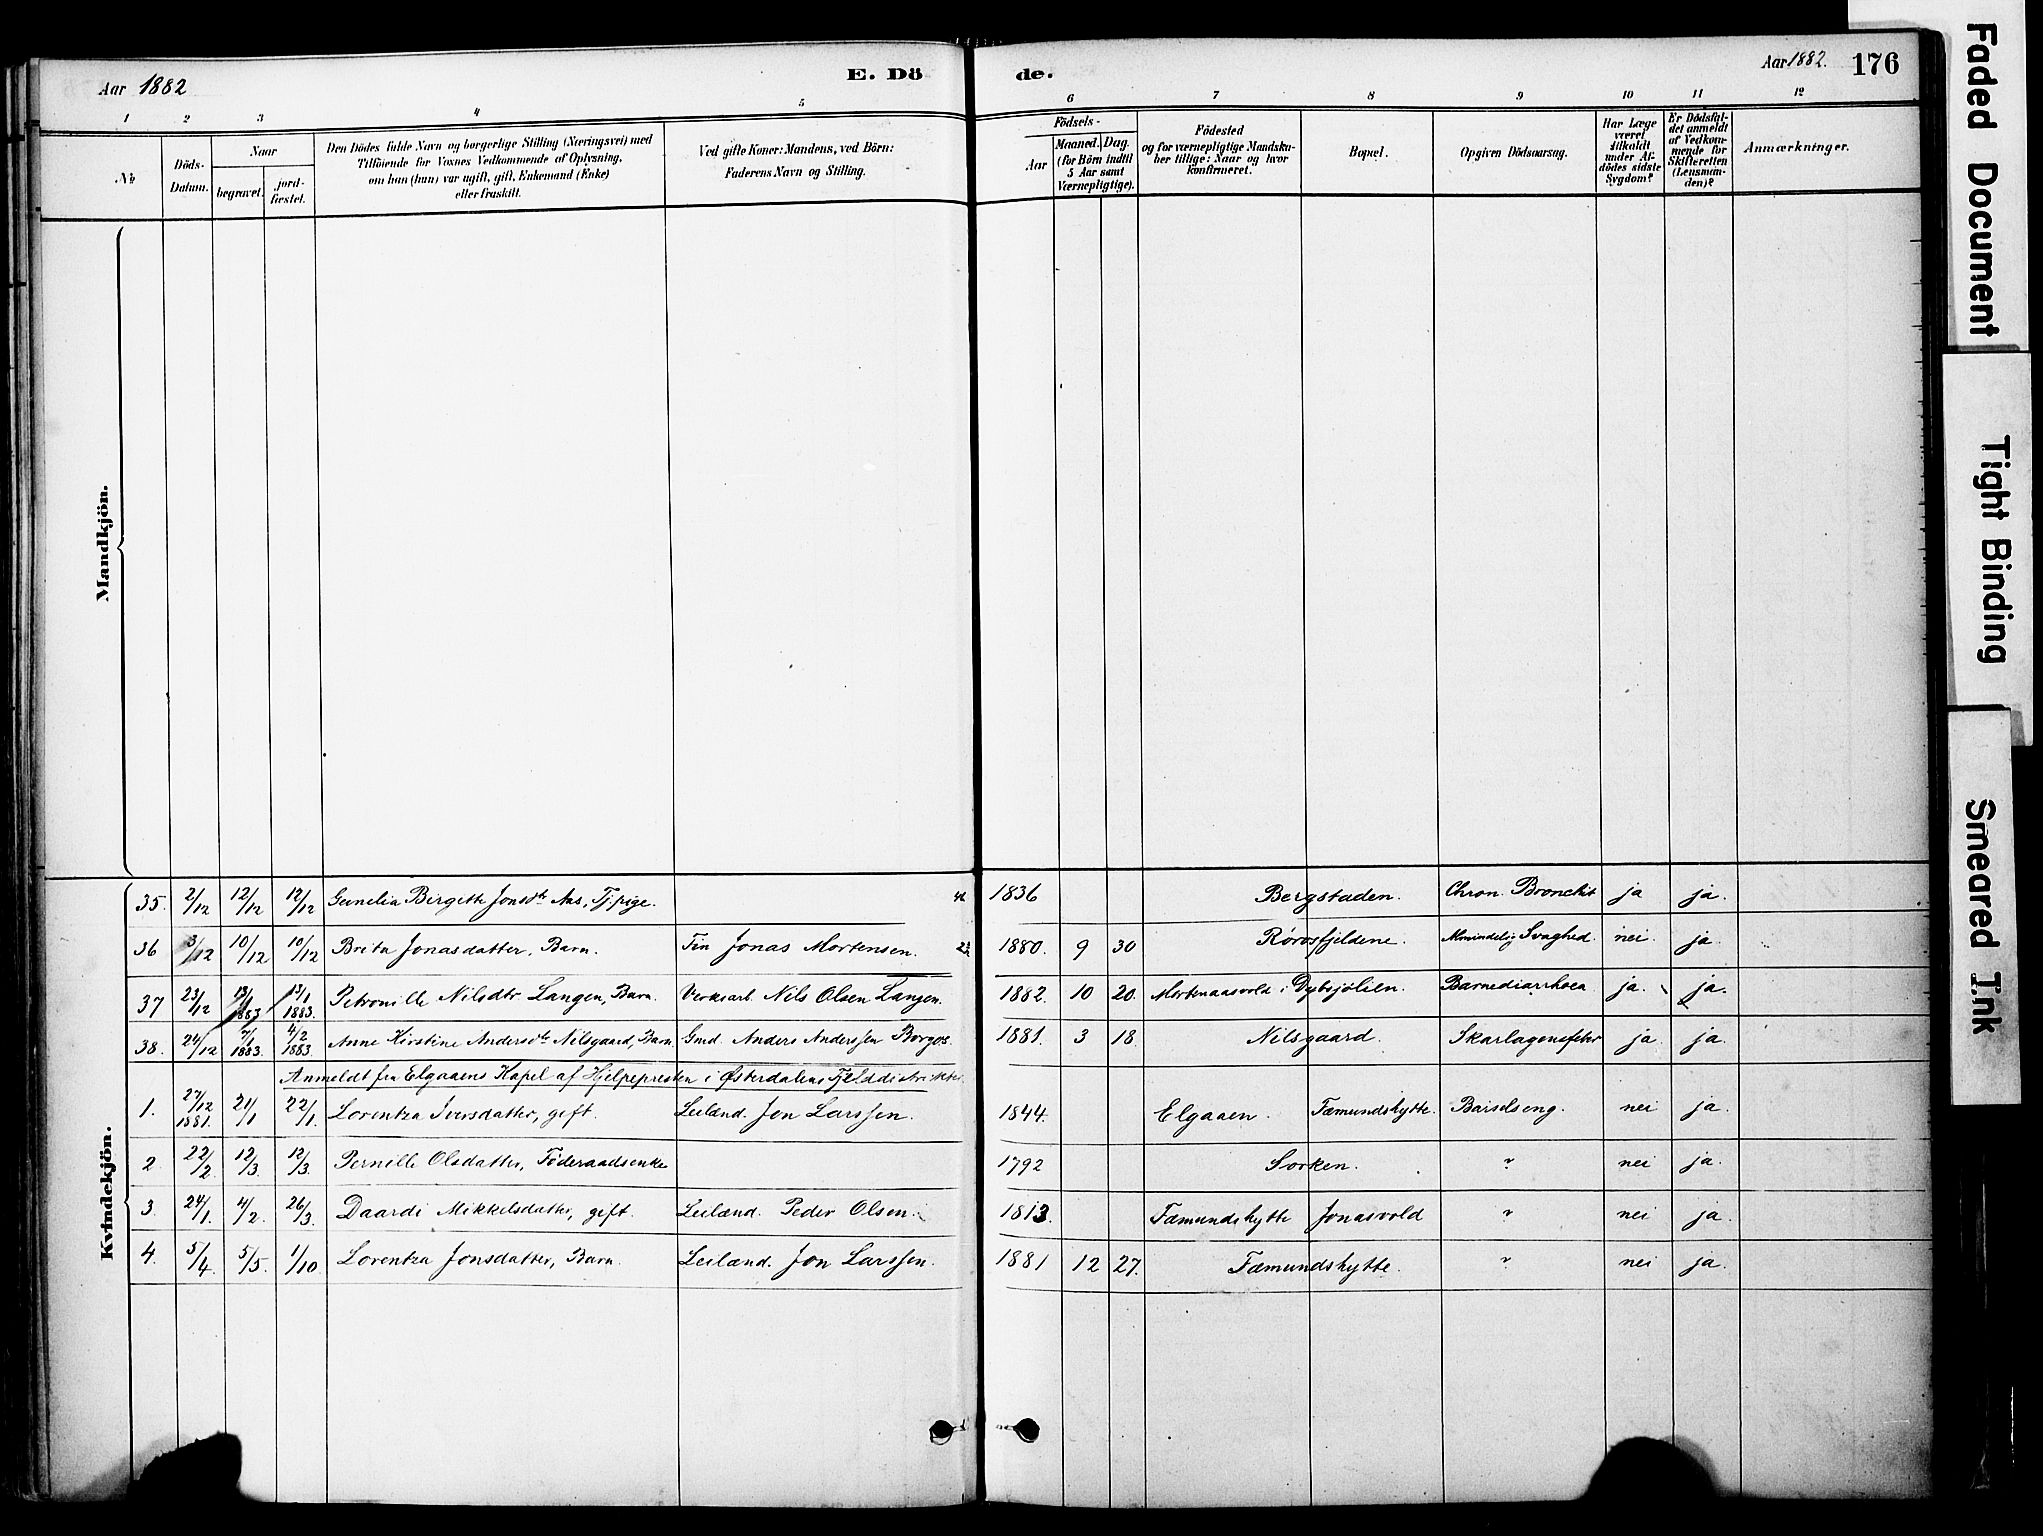 Aar 1882
E. Dö
de.
Aar 1882.
176
1 2 3 4 5
6 7 8 9 10 11 12
No
Döds-Datum.
Naar
begravet.
jord-fæstet.
Den Dödes fulde Navn og borgerlige Stilling (Næringsvei) med
Tilföiende for Voxnes Vedkommende af Oplysning,
om han (hun) var ugift, gift, Enkemand (Enke)
eller fraskilt.
Ved gifte Koner: Mandens, ved Börn:
Faderens Navn og Stilling.
Födsels-
Aar
Maaned.
Dag.
(for Börn indtil
5 Aar samt
Værnepligtige).
Födested
og for værnepligtige Mandska-
ber tillige: Naar og hvor
konfirmeret.
Bopæl.
Opgiven Dödsaarsag.
Har Læge
været
tilkaldt
under Af-
dödes sidste
Sygdom?
Er Dödsfal-
det anmeldt
af Vedkom-
mende for
Skifteretten
(Lensman-
den)?
Anmærkninger.
Mandkjön.
Kvindekjön.
35. 2/12 12/12 12/12 Birgitte Jonsdtr Aas, Tj.pige. 1836 Bergstaden. Chron. Bronchit ja ja.
36 3/12 10/12 10/12 Brita Jonasdatter, Barn. Fin Jonas Mortensen. 1880. 9 30 Rørosfjeldene. Almindelig Svaghed. nei. ja.
37 23/12 13/1 1883 13/1 1883. Petronille Nilsdtr Langen, Barn. Verksarb. Nils Olsen Langen. 1882. 10 20. i Dybsjølien. Barnediarrhoea ja. ja.
38. 24/12 7/1 1883. 4/2 1883. Anne Kirstine Andersdtr Nilsgaard, Barn. Gmd. Anders Anderssen Borgos. 1881. 3 18. Nilsgaard. Skarlagensfeber ja ja.
Anmeldt fra Elgaaens Kapel af Hjelpepresten i Østerdalens Fjelddistrikter.
1. 27/12 1881. 21/1 22/1. Lorentza Iversdatter, gift. Leilænd. Jon Larssen. 1844. Elgaaen. Fæmundshytte. Barselseng. nei ja.
2. 22/2 12/3. 12/3. Pernille Olsdatter, Føderaadsenke 1792 Sorken. " nei ja.
3. 24/1. 4/2. 26/3. Daardi Mikkelsdatter, gift. Leilænd. Peder Olsen. 1813. Fæmundshytte Jonasvold " nei ja.
4. 5/4. 5/5. 1/10. Lorentza Jonsdatter, Barn. Leilænd. Jon Larssen. 1881 12 27. Fæmundshytte. " nei ja.
Faded Document
Tight Binding
Smeared Ink